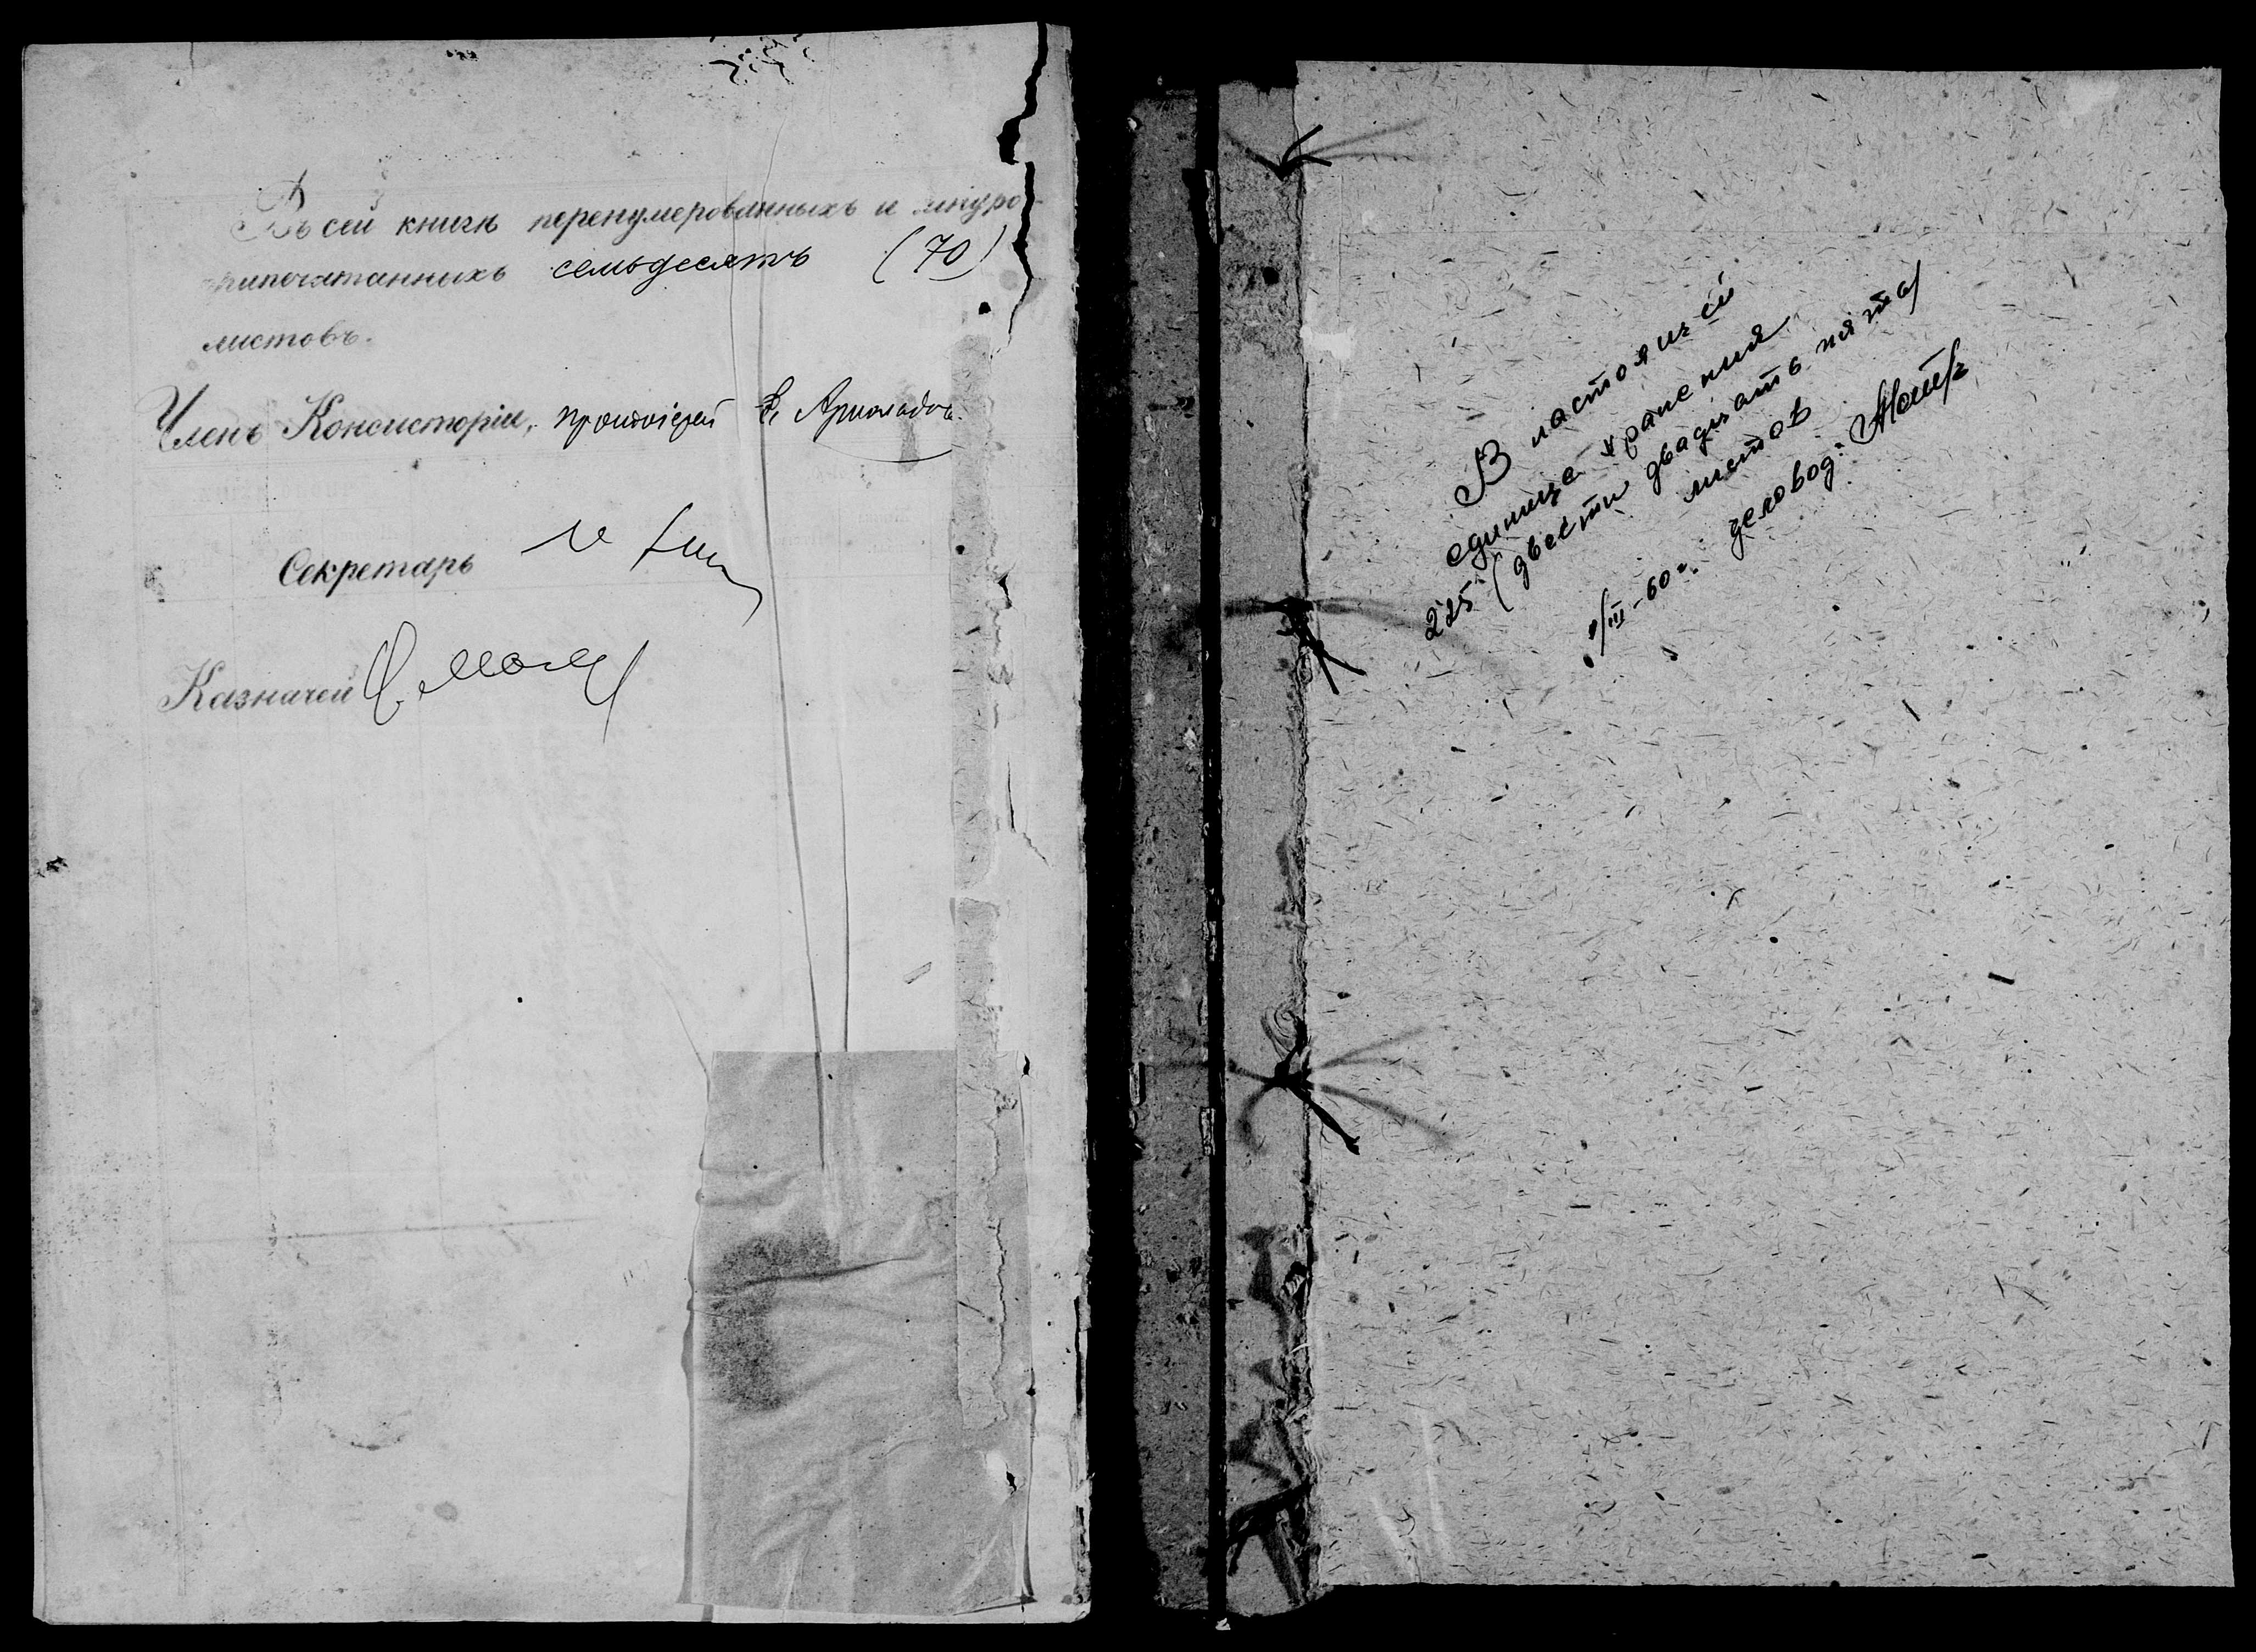 Въ сей книгѣ перенумерованныхъ и шнуро-
припечатанныхъ семьдесятъ (70)
листовъ.
Членъ Консисторіи, протоіерей
Секретарь
Казначей
В настоящей
единице хранения
225 (двести двадцать пять)
листов
/III-60г. деловод: